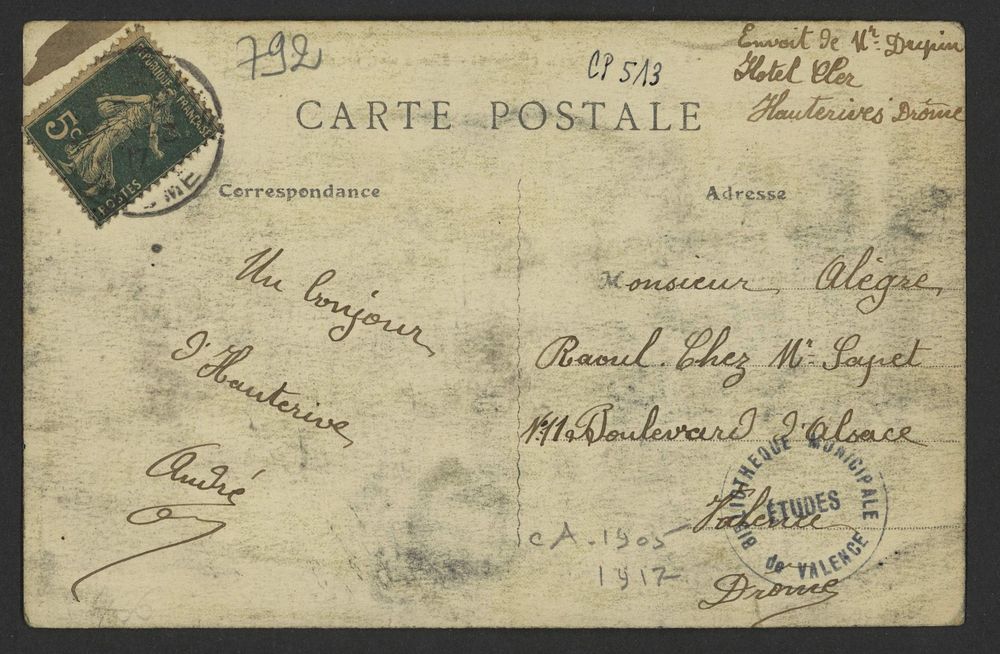 792
CP 513
Envoit de Mr. Dupin
Hotel Cler
Hauterives Drôme
CARTE POSTALE
RÉPUBLIQUE FRANÇAISE
5c
POSTES
Correspondance
Adresse
Un bonjour
d'Hauterive
André
Monsieur Alègre
Raoul. Chez Mr. Sapet
N° 11 Boulevard d'Alsace
Valence
Drôme
BIBLIOTHEQUE MUNICIPALE
ÉTUDES
de VALENCE
CA. 1905
1917